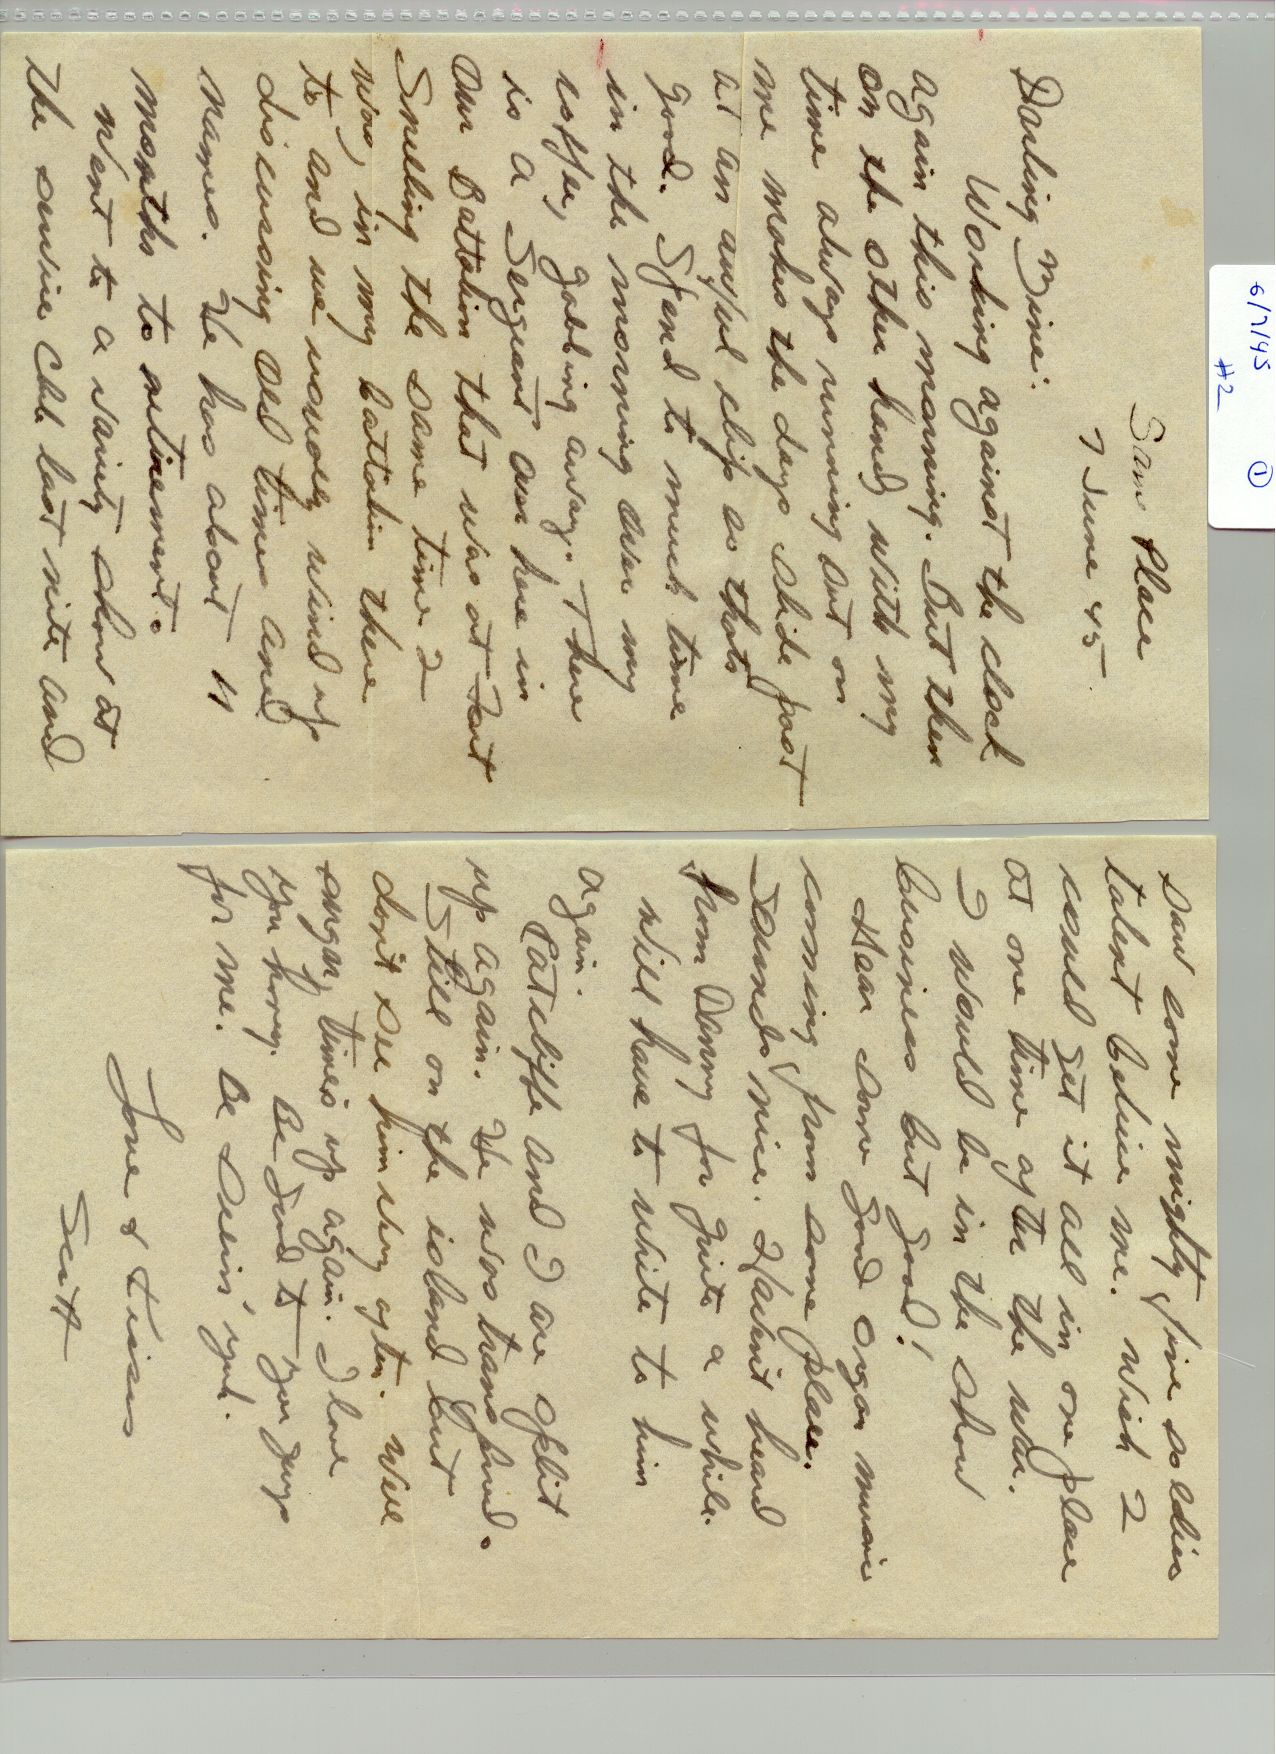 6/7/45 ①
#2
Same Place
7 June 45.
Darling Mine:
Working against the clock
again this morning. But then
on the other hand, with my
time always running out on
me makes the days slide past
at an awful clip so thats
good. Spend to much time
in the morning over my
coffee, gabbing away. There
is a Sergeant over here in
our Battalion that was at Fort
Snelling the same time I
was, in my battalion there
to, and we usually wind up
discussing old times and
names. He has about 11
months to retirement.
Went to a variety show at
the service club last nite and
saw some mighty fine soldier
talent believe me. Wish I
could get it all in one place
at one time after the war.
I would be in the show
business but good!
Hear some good organ music
coming from some place.
Sounds nice. Haven't heard
from Danny for quite a while.
Will have to write to him
again.
Ratcliffe and I are split
up again. He was transferred.
Still on the island but
don't see him very often. Well
sugar, times up again. I love
you honey. Be good to you guys
for me. Be seein' you.
Love & Kisses
Scott